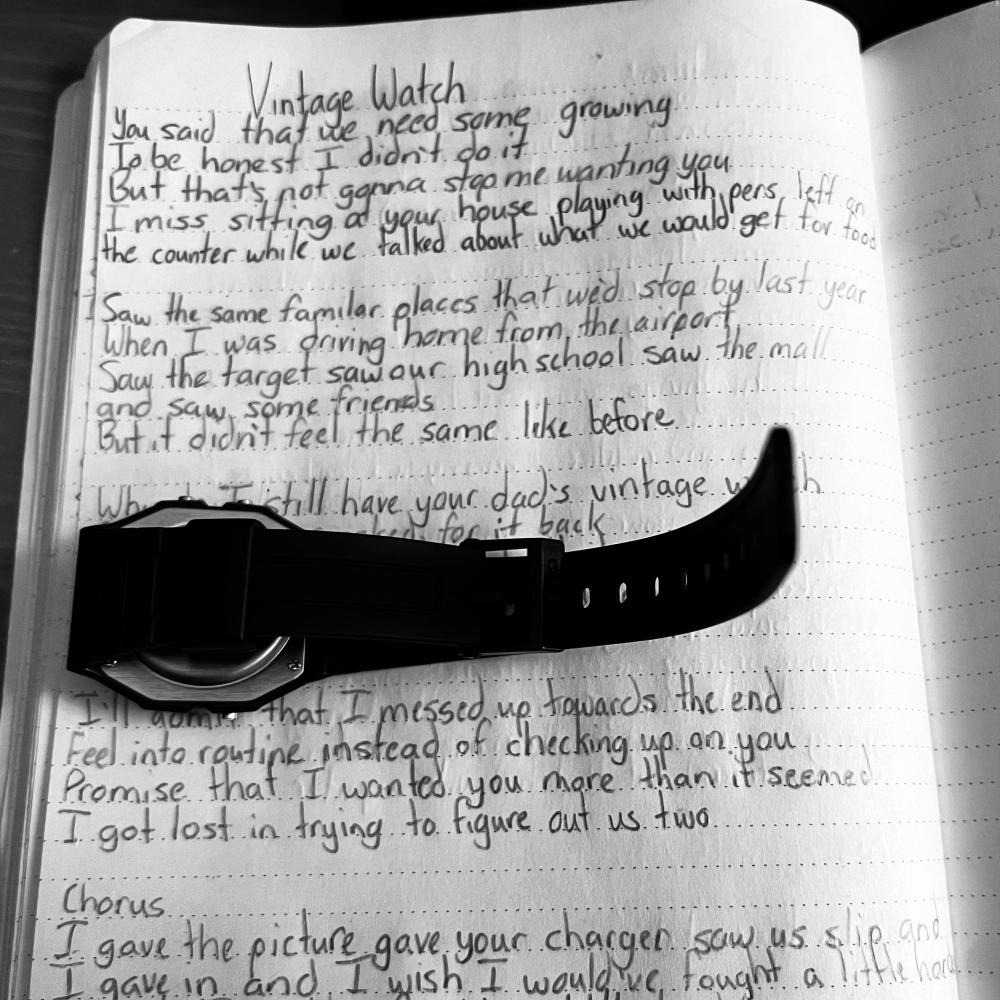 Vintage Watch
You said that we need some growing
To be honest I didn't do it
But that's not gonna stop me wanting you
I miss sitting at your house playing with pens left on
the counter while we talked about what we would get for food
Saw the same familar places that we'd stop by last year
When I was driving home from the airport
Saw the target saw our high school saw the mall
and saw some friends
But it didn't feel the same like before
I still have your dad's vintage
for it back
I'll admit that I messed up towards the end
Feel into routine instead of checking up on you
Promise that I wanted you more than it seemed
I got lost in trying to figure out us two
Chorus
I gave the picture gave your charger saw us slip and
I gave in and I wish I would've fought a little